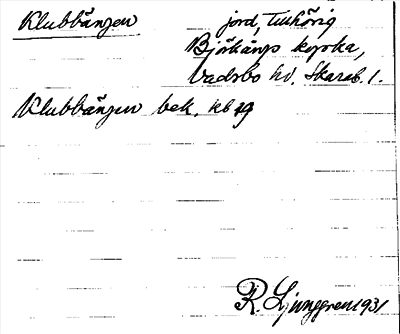 Klubbängen jord, tillhörig
Björkängs kyrka,
Vadsbo hd. Skarab. l.
Klubbängen bek. kb 19
R. Ljunggren 1931